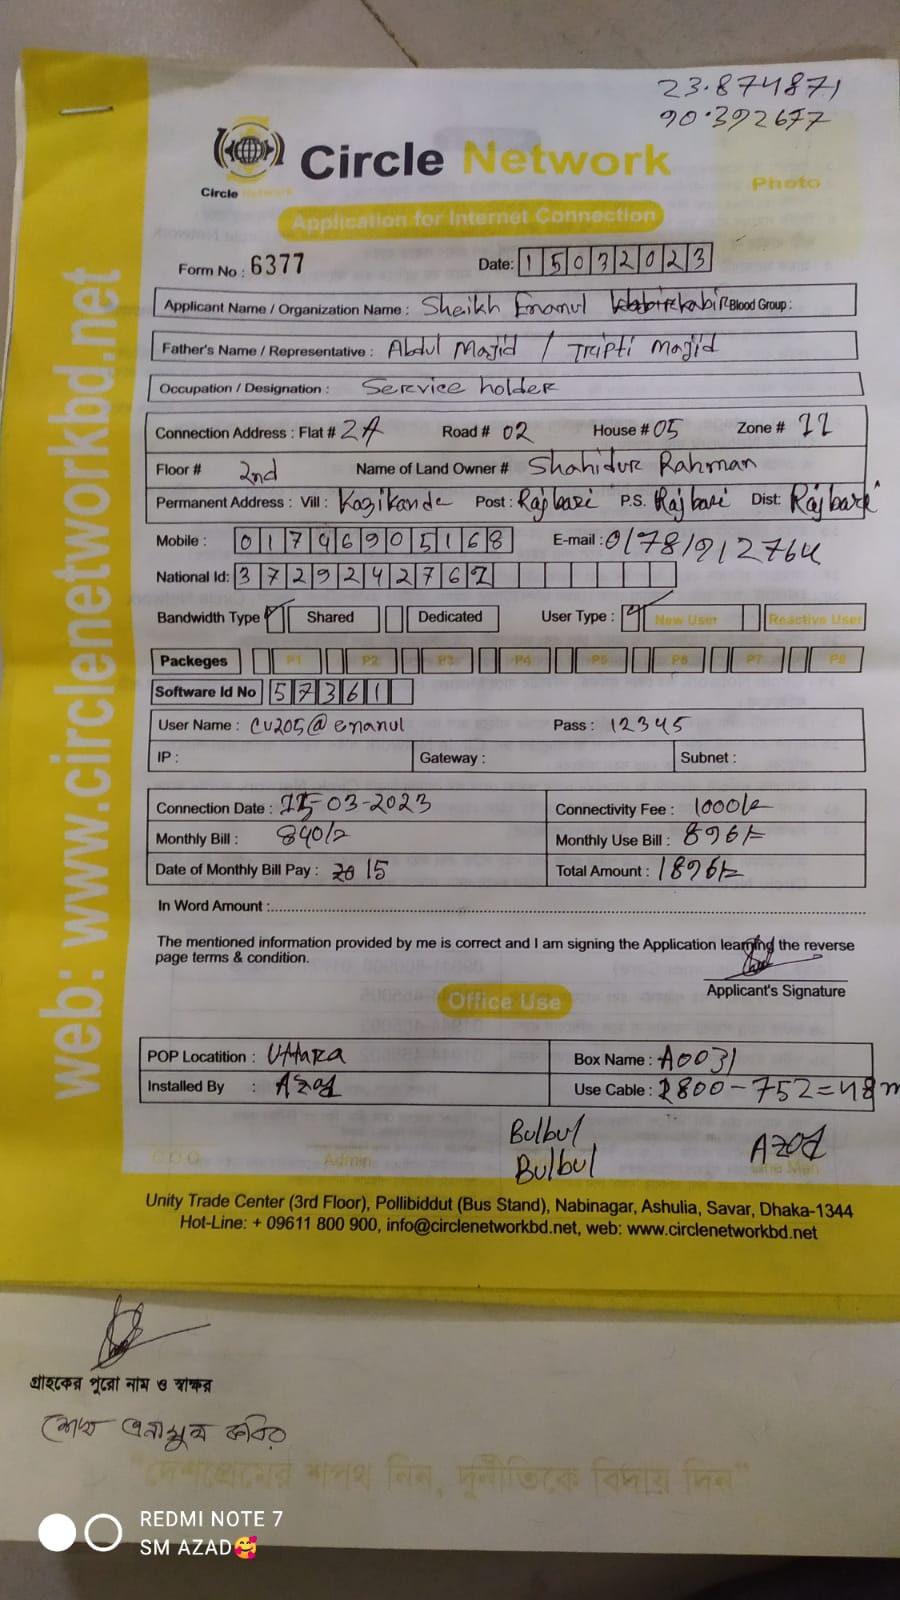 23.874871
90.392677
Circle Network
Circle Network
Photo
Application for Internet Connection
Form No : 6377 Date: 15032023
Applicant Name / Organization Name : Sheikh Emanul Kabir Blood Group :
Father's Name / Representative : Abdul Majid / Tripti Majid
Occupation / Designation : Service holder
Connection Address : Flat # 2A Road # 02 House # 05 Zone # 11
Floor # 2nd Name of Land Owner # Shahidur Rahman
Permanent Address : Vill : Kazikanda Post : Rajbari P.S. Rajbari Dist: Rajbari
Mobile : 01746905168 E-mail : 01781912764
National Id: 3729242767
Bandwidth Type Shared Dedicated User Type : New User Reactive User
Packeges P1 P2 P3 P4 P5 P6 P7 P8
Software Id No 57361
User Name : CU205@emanul Pass : 12345
IP : Gateway : Subnet :
Connection Date : 15-03-2023 Connectivity Fee : 1000/=
Monthly Bill : 840/= Monthly Use Bill : 896/=
Date of Monthly Bill Pay : 15 Total Amount : 1896/=
In Word Amount :
The mentioned information provided by me is correct and I am signing the Application learning the reverse
page terms & condition.
Applicant's Signature
Office Use
POP Locatition : Uttara Box Name : A0031
Installed By : Azad Use Cable : 800-752=48m
Bulbul
Bulbul Azad
C O O Admin Line Man
Unity Trade Center (3rd Floor), Pollibiddut (Bus Stand), Nabinagar, Ashulia, Savar, Dhaka-1344
Hot-Line: + 09611 800 900, info@circlenetworkbd.net, web: www.circlenetworkbd.net
web: www.circlenetworkbd.net
গ্রাহকের পুরো নাম ও স্বাক্ষর
শেখ এনামুল কবির
"দেশপ্রেমের শপথ নিন, দুর্নীতিকে বিদায় দিন"
REDMI NOTE 7
SM AZAD🥰